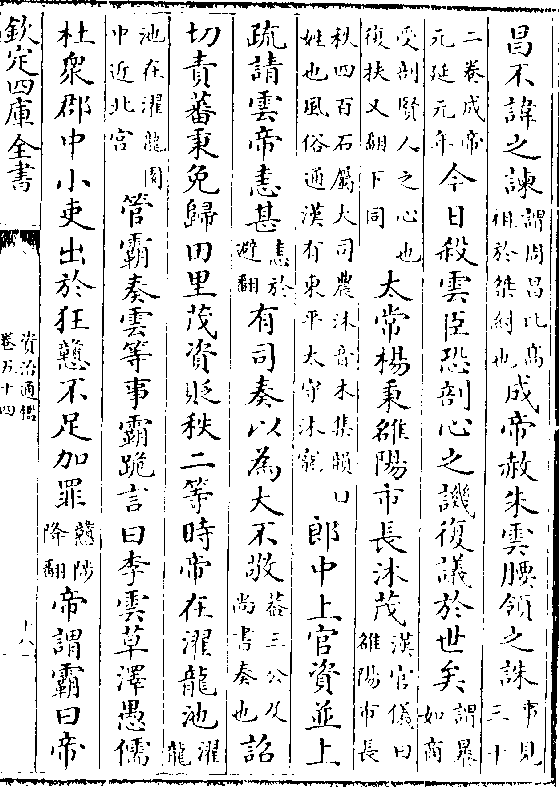 昌不諱之諫謂周昌比高祖於桀紂也成帝赦朱雲腰領之誅事見三十
二卷成帝元延元年今日殺雲臣恐剖心之譏復議於世矣謂暴如商
受剖賢人之心也復扶又翻下同太常楊秉雒陽市長沐茂漢官儀曰雒陽市長
秩四百石屬大司農沐音木集韻口姓也風俗通漢有東平太守沐寵郎中上官資並上
疏請雲帝恚甚恚於避翻有司奏以為大不敬葢三公及尚書奏也詔
切責蕃秉免歸田里茂資貶秩二等時帝在濯龍池濯龍
池在濯龍園中近北宮管霸奏雲等事霸跪言曰李雲草澤愚儒
杜衆郡中小吏出於狂戇不足加罪戇陟降翻帝謂霸曰帝
欽定四庫全書
資治通鑑
卷五十四
十八